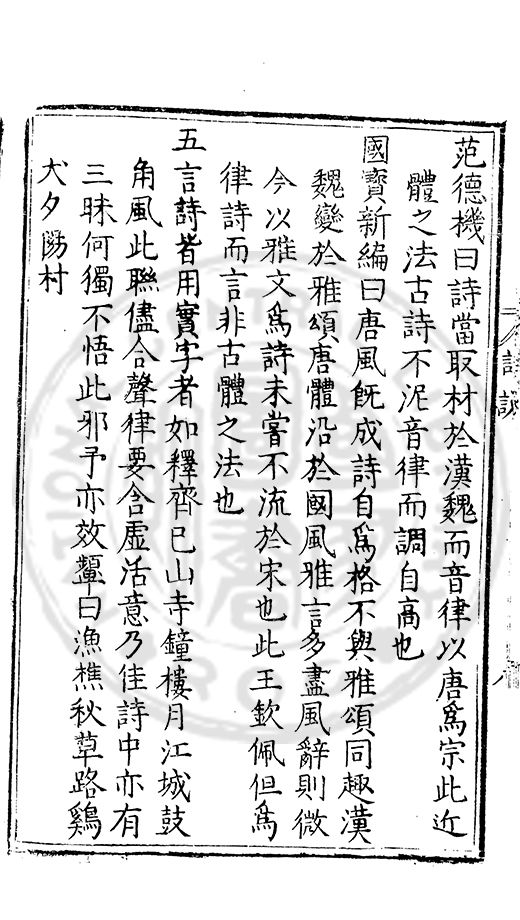 范德機曰詩當取材於漢魏而音律以唐為宗此近
體之法古詩不泥音律而調自高也
國寶新編曰唐風旣成詩自為格不與雅頌同趣漢
魏變於雅頌唐體沿於國風雅言多盡風辭則微
今以雅文為詩未嘗不流於宋也此王欽佩但為
律詩而言非古體之法也
五言詩皆用實字者如釋齊已山寺鐘樓月江城鼓
角風此聯儘合聲律要含虛活意乃佳詩中亦有
三昧何獨不悟此邪予亦效顰曰漁樵秋草路鷄
犬夕陽村